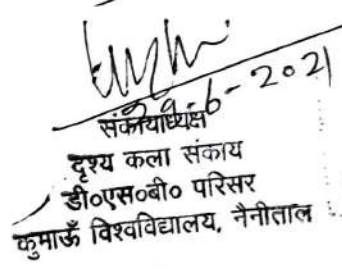 29-6-2021
संकायाध्यक्ष
दृश्य कला संकाय
डी०एस०बी० परिसर
कुमाऊँ विश्वविद्यालय, नैनीताल